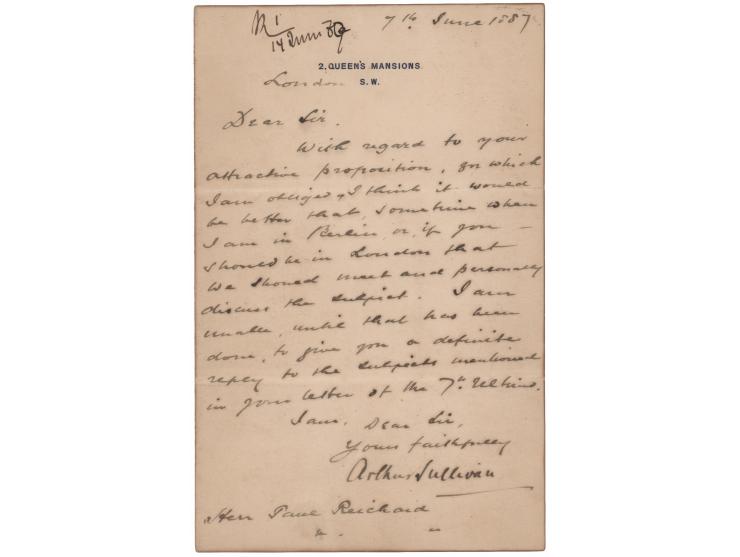 7th June 1887
14 Juni 87
2, QUEEN'S MANSIONS
London S. W.
Dear Sir.
With regard to your
attractive proposition, for which
I am obliged, I think it would
be better that, sometime when
I am in Berlin or, if you —
should be in London that
we should meet and personally
discuss the subject. I am
unable, until that has been
done, to give you a definite
reply to the subjects mentioned
in your letter of the 7th Ultimo.
I am, Dear Sir,
Yours faithfully
Arthur Sullivan
Herr Paul Reichard